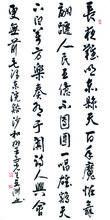 長夜難明赤縣天百年魔怪舞
翩躚人民五億不團圓一唱雄雞天
下白萬方樂奏有于闐詩人興會
更無前毛澤東浣溪沙和柳亞子先生